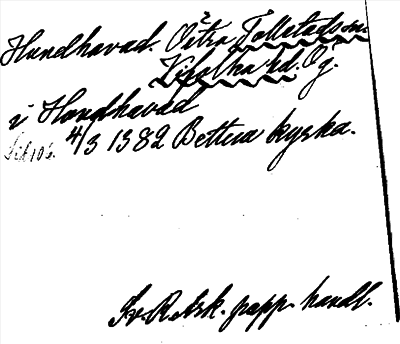 Hundhavad. Östra Tollstads sn.
Vifolka hd. Ög.
i Hundhavad
4/3 1382 Bettua kyrka.
Sv. R. Ark. papp. handl.